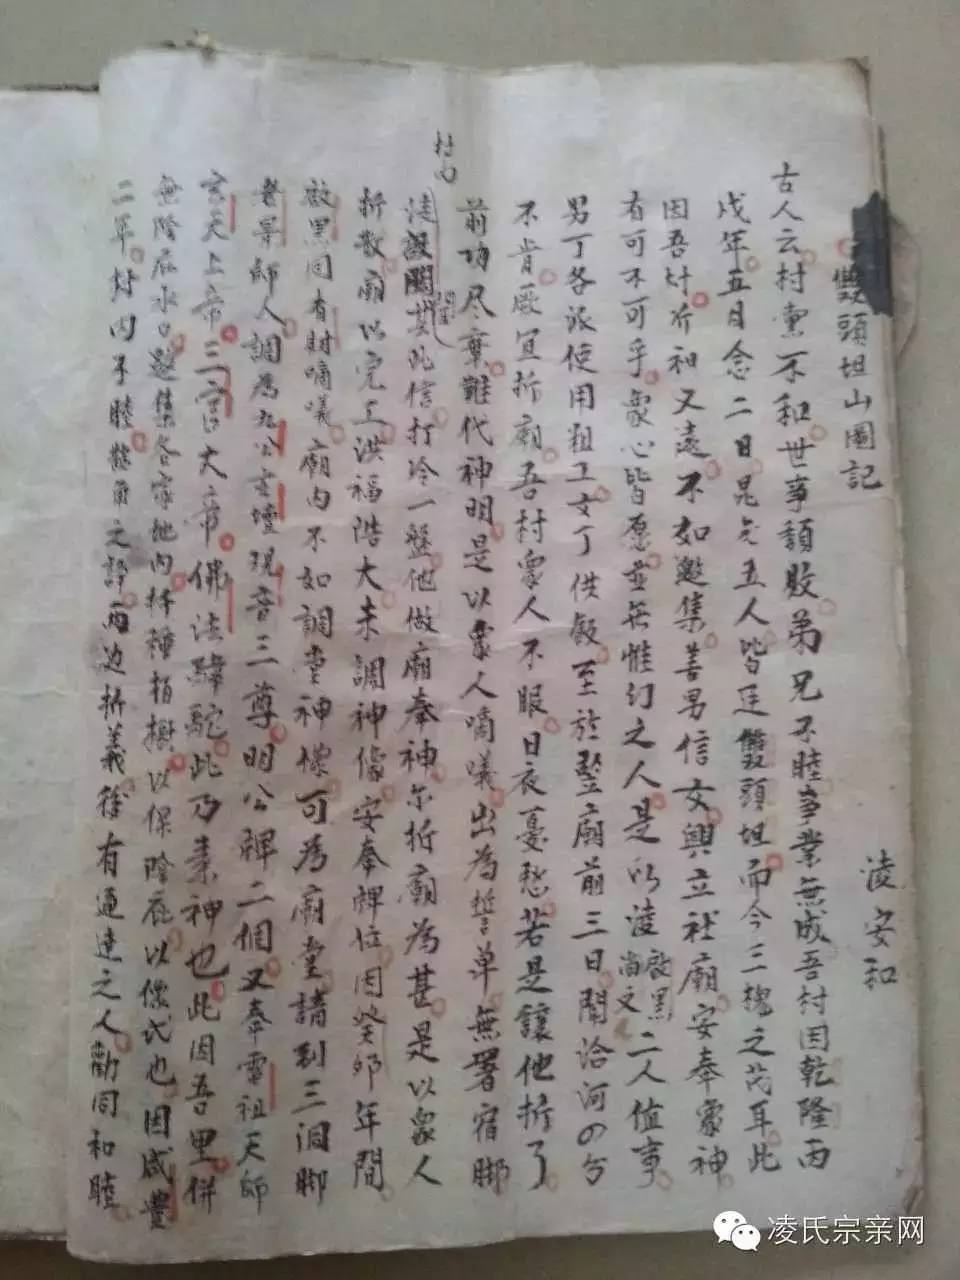 雙頭坦山圖記
凌安和
古人云村黨不和世事頹敗弟兄不睦事業無成吾村因乾隆丙
戊年五日念二日晃文五人皆廷雙頭坦而今三槐之芮耳此
因吾村介和又遠不如邀集善男信女興立社廟安奉眾神
有可不可乎眾心皆愿並無惟幻之人是以淩啟黑尚文二人值事
男丁各派使用粗工女丁供飯至於豎廟前三日間洽河の分
不肯厰宜折廟吾村眾人不眠日夜憂愁若是讓他折了
前功尽棄難代神明是以眾人嘀嘆出為誓章無署宿脚
村内
徒設關其此信打冷一盤他做廟奉神尔折廟為甚是以眾人
折散廟以完工洪福階大未調神像安奉牌位因癸卯年間
啟黑回有財嘀嘆廟内不如調堂神像可為廟堂請到三洞脚
老景師人調為九公玄壇观音三尊明公牌二個又奉雷祖天師
玄天上帝三官大帝佛法驛駝此乃素神也此因吾里併
無陰庇水口邀集各家地内扦種栢樹以保陰庇以像式也因咸豐
二年村内不睦鵲角之諍兩边折義後有通達之人勸同和睦
凌氏宗亲网